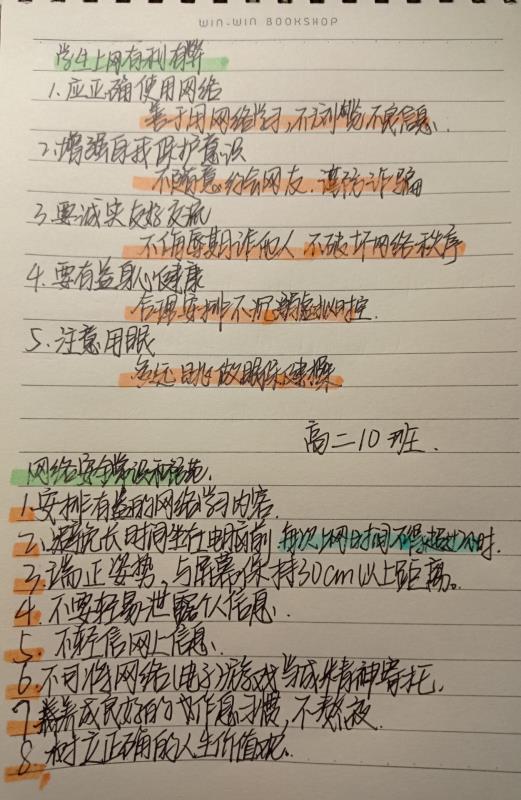 WIN-WIN BOOKSHOP
学生上网有利有弊
1. 应正确使用网络
善于用网络学习,不浏览不良信息.
2. 增强自我保护意识
不随意约会网友.谨防诈骗
3. 要诚实友好交流
不侮辱欺诈他人 不破坏网络秩序
4. 要有益身心健康
合理安排不沉溺虚拟时空.
5. 注意用眼
做眼保健操
高二10班.
网络安全常识和规范.
1. 安排有益的网络学习内容.
2. 避免长时间坐在电脑前.每次上网时间不得超过2小时.
3. 端正姿势,与屏幕保持30cm以上距离。
4. 不要轻易泄露个人信息.
5. 不轻信网上信息.
6. 不可将网络(电子)游戏当成精神寄托.
7 养成良好的作息习惯,不熬夜.
8. 树立正确的人生价值观.